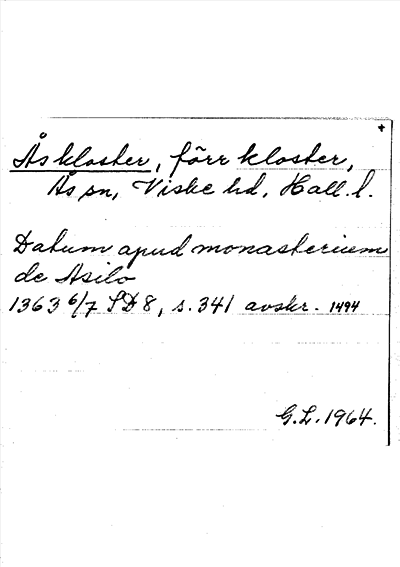 +
Åskloster, förr kloster,
Ås sn, Viske hd, Hall. l.
Datum apud monasterium
de Asilo
1363 6/7 SD 8, s. 341 avskr. 1494
G.L. 1964.